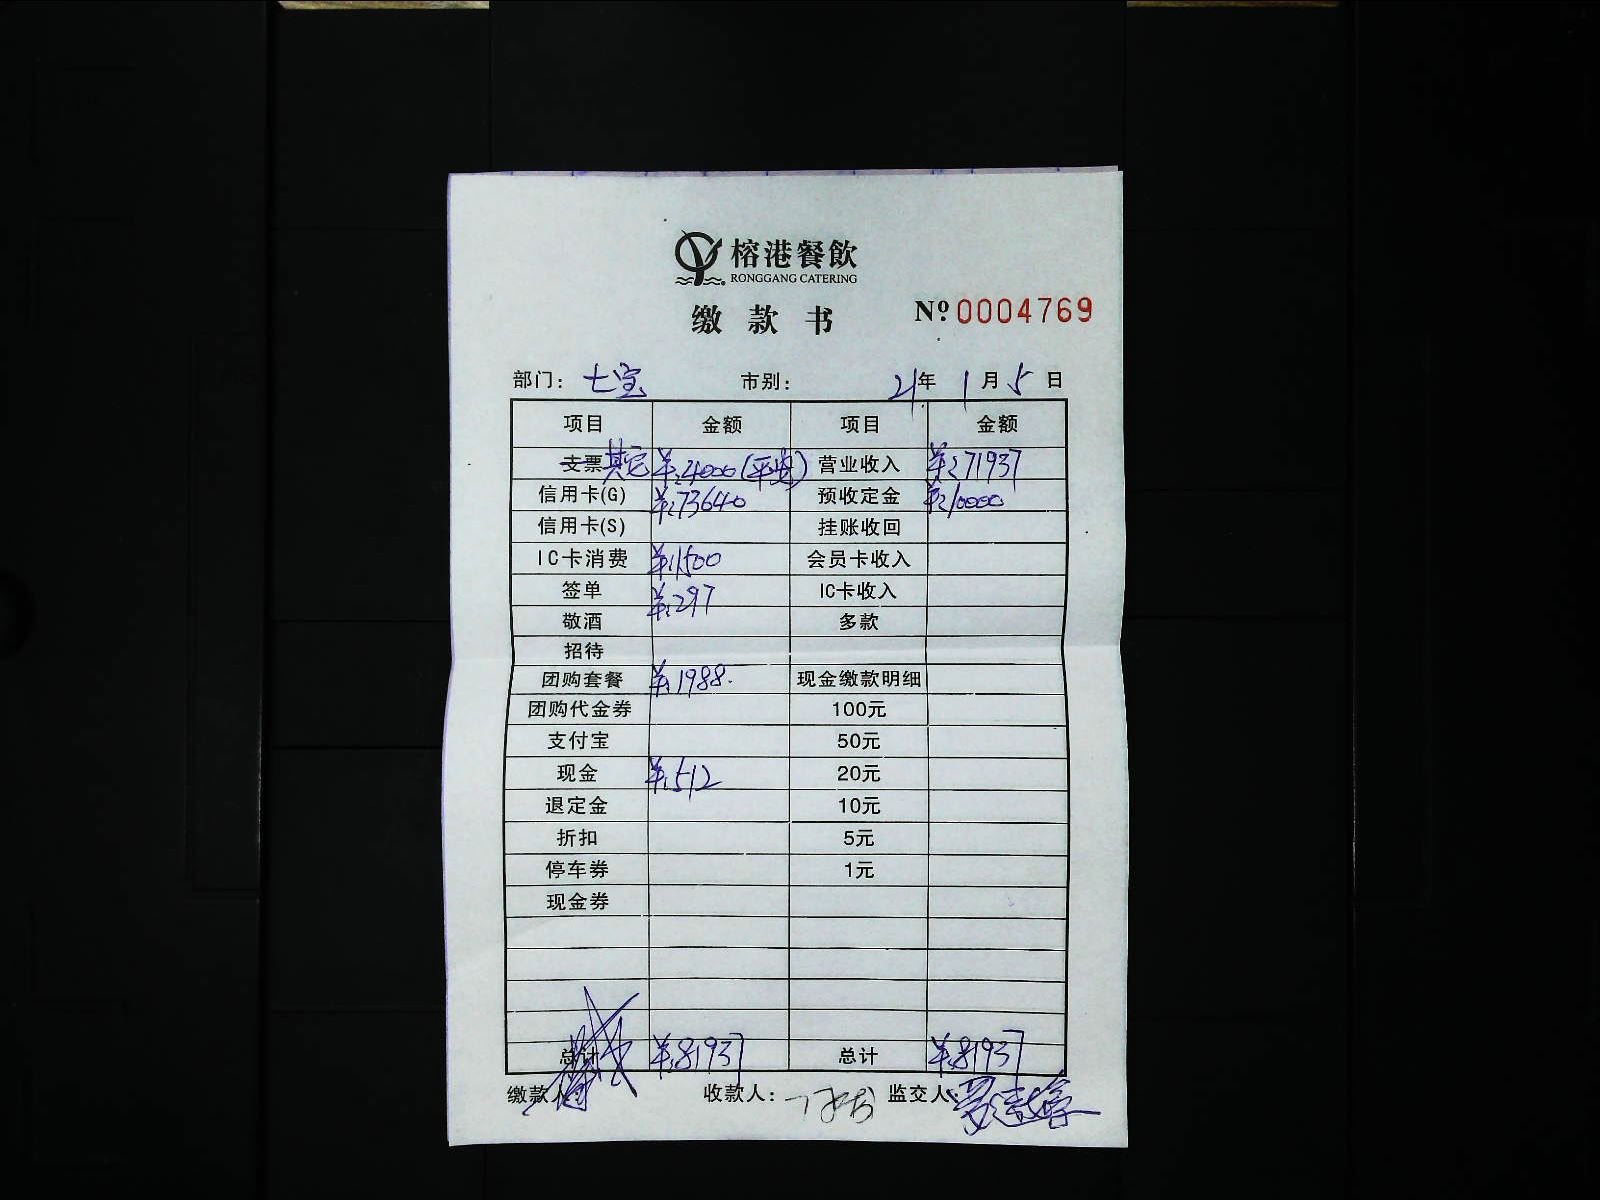 榕港餐飲
RONGGANG CATERING
缴款书 Nº 0004769
部门： 七宝 市别： 21年 1月 5日
项目 金额 项目 金额
支票 其它 ¥:4000(平安) 营业收入 ¥:71937
信用卡(G) ¥:73640 预收定金 ¥:10000
信用卡(S) 挂账收回
IC卡消费 ¥:1500 会员卡收入
签单 ¥:297 IC卡收入
敬酒 多款
招待
团购套餐 ¥:1988. 现金缴款明细
团购代金券 100元
支付宝 50元
现金 ¥:512 20元
退定金 10元
折扣 5元
停车券 1元
现金券
总计 ¥:81937 总计 ¥:81937
缴款人： 收款人： 监交人：